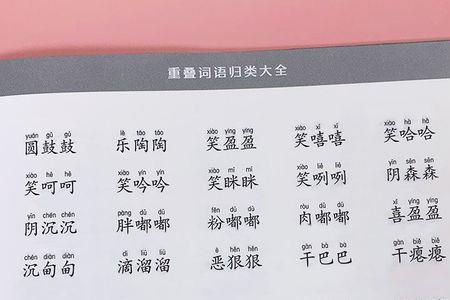 重叠词语归类大全
yuán gǔ gǔ lè táo táo xiào yíng yíng xiào xī xī xiào hā hā
圆鼓鼓 乐陶陶 笑盈盈 笑嘻嘻 笑哈哈
xiào hē hē xiào yín yín xiào mī mī xiào liē liē yīn sēn sēn
笑呵呵 笑吟吟 笑眯眯 笑咧咧 阴森森
yīn chén chén pàng dū dū fěn dū dū ròu dū dū xǐ yíng yíng
阴沉沉 胖嘟嘟 粉嘟嘟 肉嘟嘟 喜盈盈
chén diàn diàn dī liū liū è hěn hěn gān bā bā gān biě biě
沉甸甸 滴溜溜 恶狠狠 干巴巴 干瘪瘪